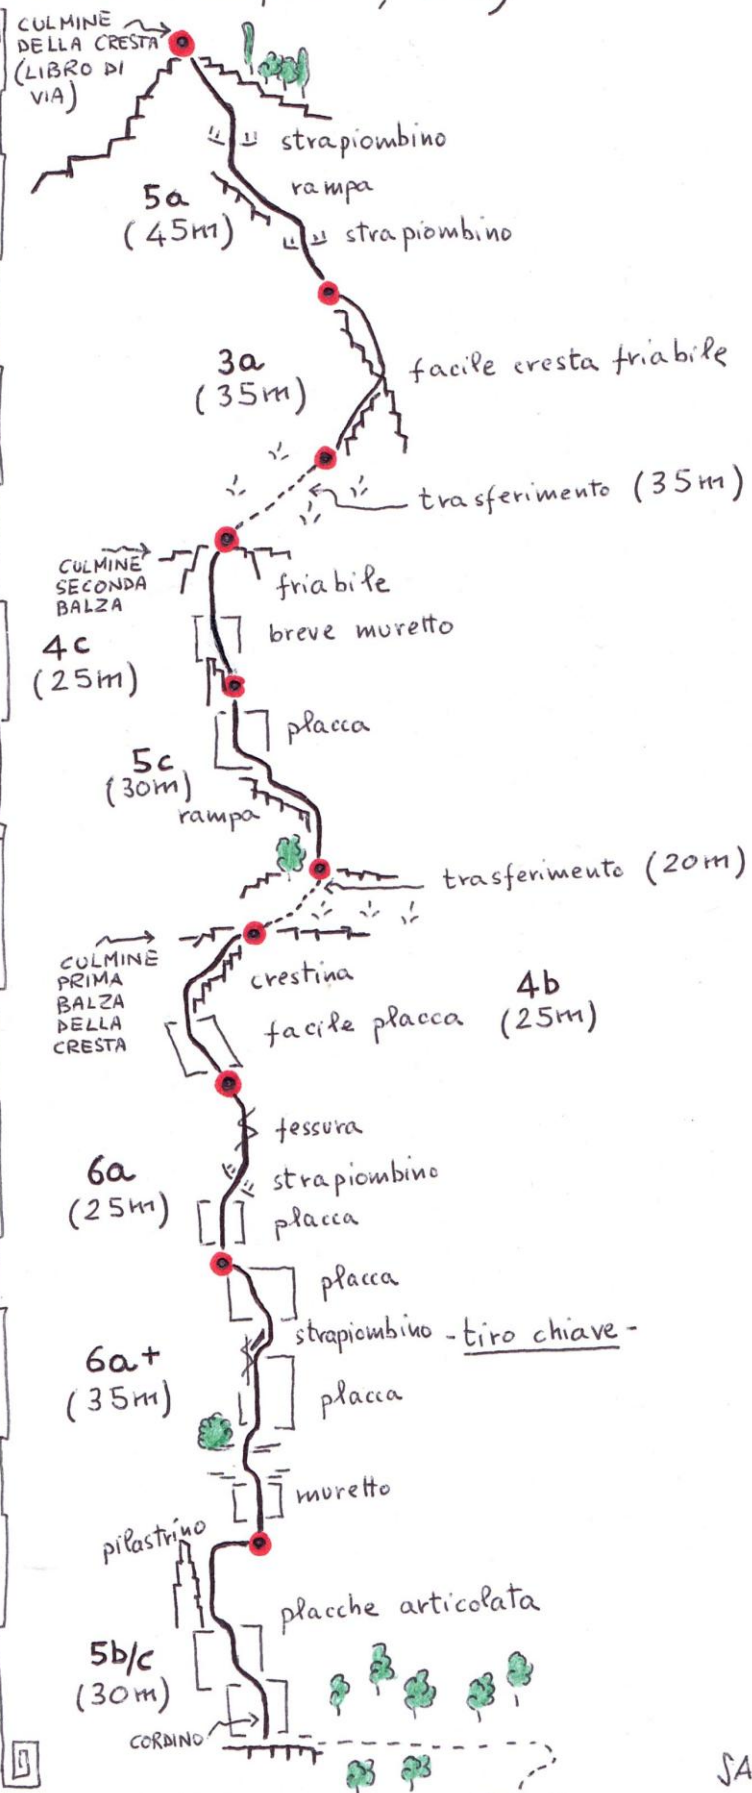 CULMINE
DELLA CRESTA
(LIBRO DI
VIA)
strapiombino
rampa
5a
(45m)
strapiombino
3a
(35m)
facile cresta friabile
trasferimento (35m)
CULMINE
SECONDA
BALZA
friabile
breve muretto
4c
(25m)
placca
5c
(30m)
rampa
trasferimento (20m)
CULMINE
PRIMA
BALZA
DELLA
CRESTA
crestina
4b
(25m)
facile placca
fessura
6a
(25m)
strapiombino
placca
placca
strapiombino - tiro chiave -
6a+
(35m)
placca
muretto
pilastrino
placche articolata
5b/c
(30m)
CORDINO
SA